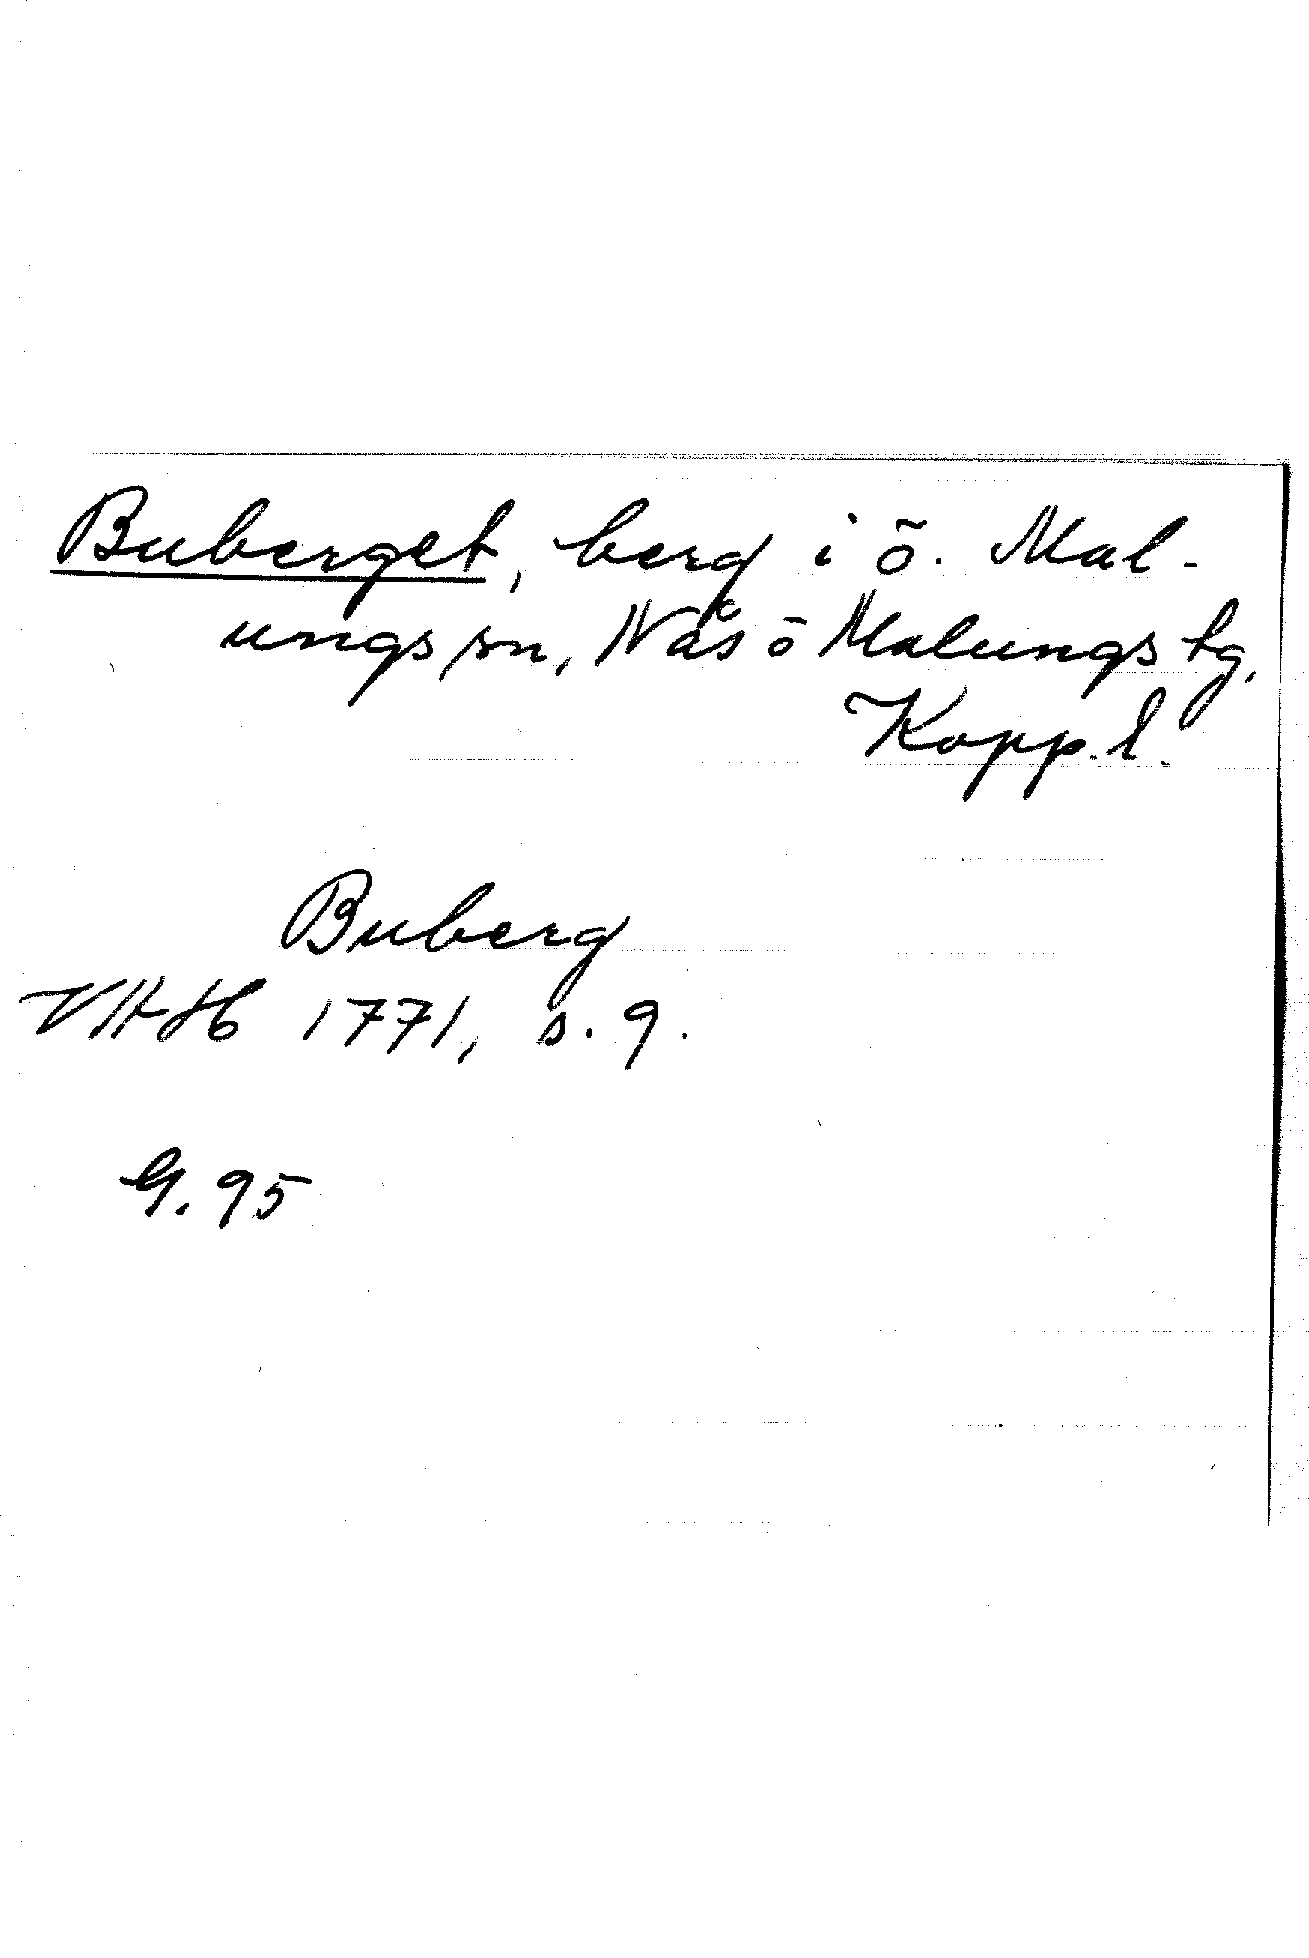 Buberget, berg i ö. Mal-
ungs sn, Nås ö Malungs tg,
Kopp. l.
Buberg
VHAH 1771, s. 9.
G. 95